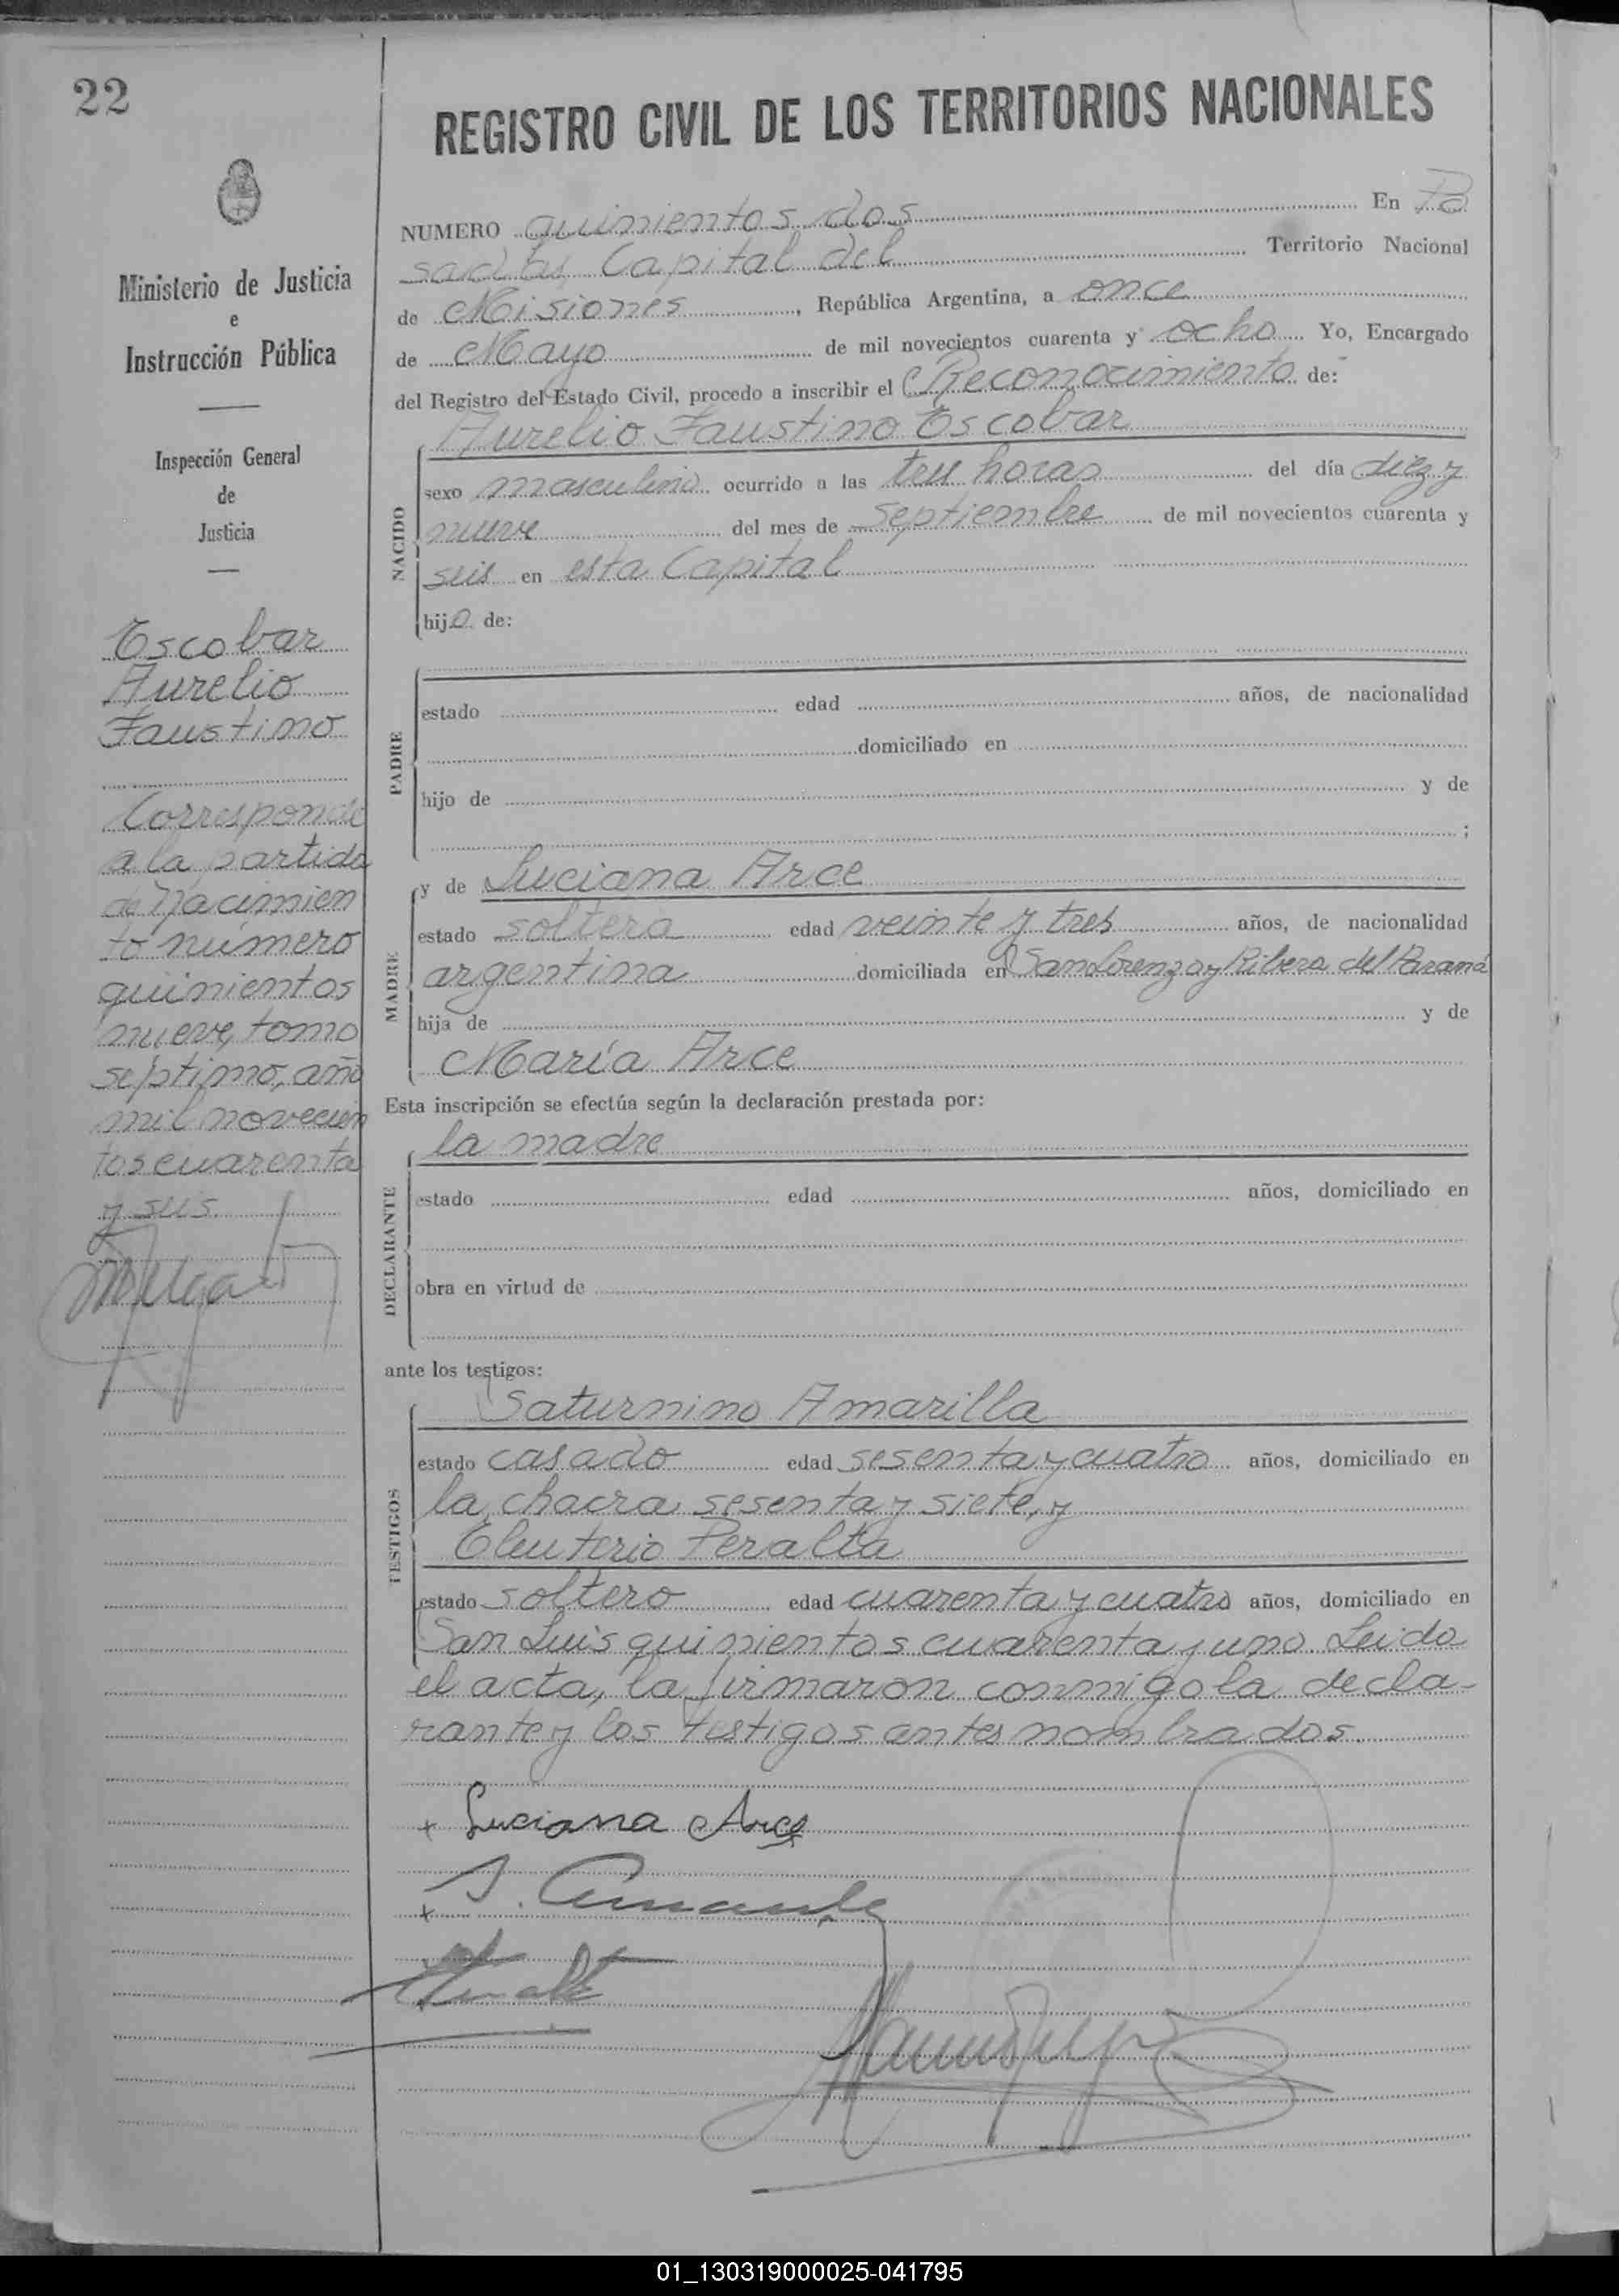 22
Ministerio de Justicia
e
Instrucción Pública
Inspección General
de
Justicia
Escobar
Aurelio
Faustino
Corresponde
a la partida
de Nacimien
to número
quinientos
nueve, tomo
séptimo, año
mil novecien
tos cuarenta
y seis
REGISTRO CIVIL DE LOS TERRITORIOS NACIONALES
NUMERO quinientos dos En Po
sadas, Capital del Territorio Nacional
de Misiones, República Argentina, a once
de Mayo de mil novecientos cuarenta y ocho Yo, Encargado
del Registro del Estado Civil, procedo a inscribir el Reconocimiento de:
Aurelio Faustino Escobar
NACIDO
sexo masculino ocurrido a las tres horas del día diez y
nueve del mes de Septiembre de mil novecientos cuarenta y
seis en esta Capital
hijo de:
PADRE
estado edad años, de nacionalidad
domiciliado en
hijo de y de
;
MADRE
y de Luciana Arce
estado soltera edad veinte y tres años, de nacionalidad
argentina domiciliada en San Lorenzo y Ribera del Paraná
hija de y de
María Arce
Esta inscripción se efectúa según la declaración prestada por:
la madre
DECLARANTE
estado edad años, domiciliado en
obra en virtud de
ante los testigos:
TESTIGOS
Saturnino Amarilla
estado casado edad sesenta y cuatro años, domiciliado en
la chacra sesenta y siete, y
Eleuterio Peralta
estado soltero edad cuarenta y cuatro años, domiciliado en
San Luis quinientos cuarenta y uno. Leida
el acta, la firmaron conmigo la decla-
rante y los testigos antes nombrados.
+ Luciana Arce
+
01_130319000025-041795